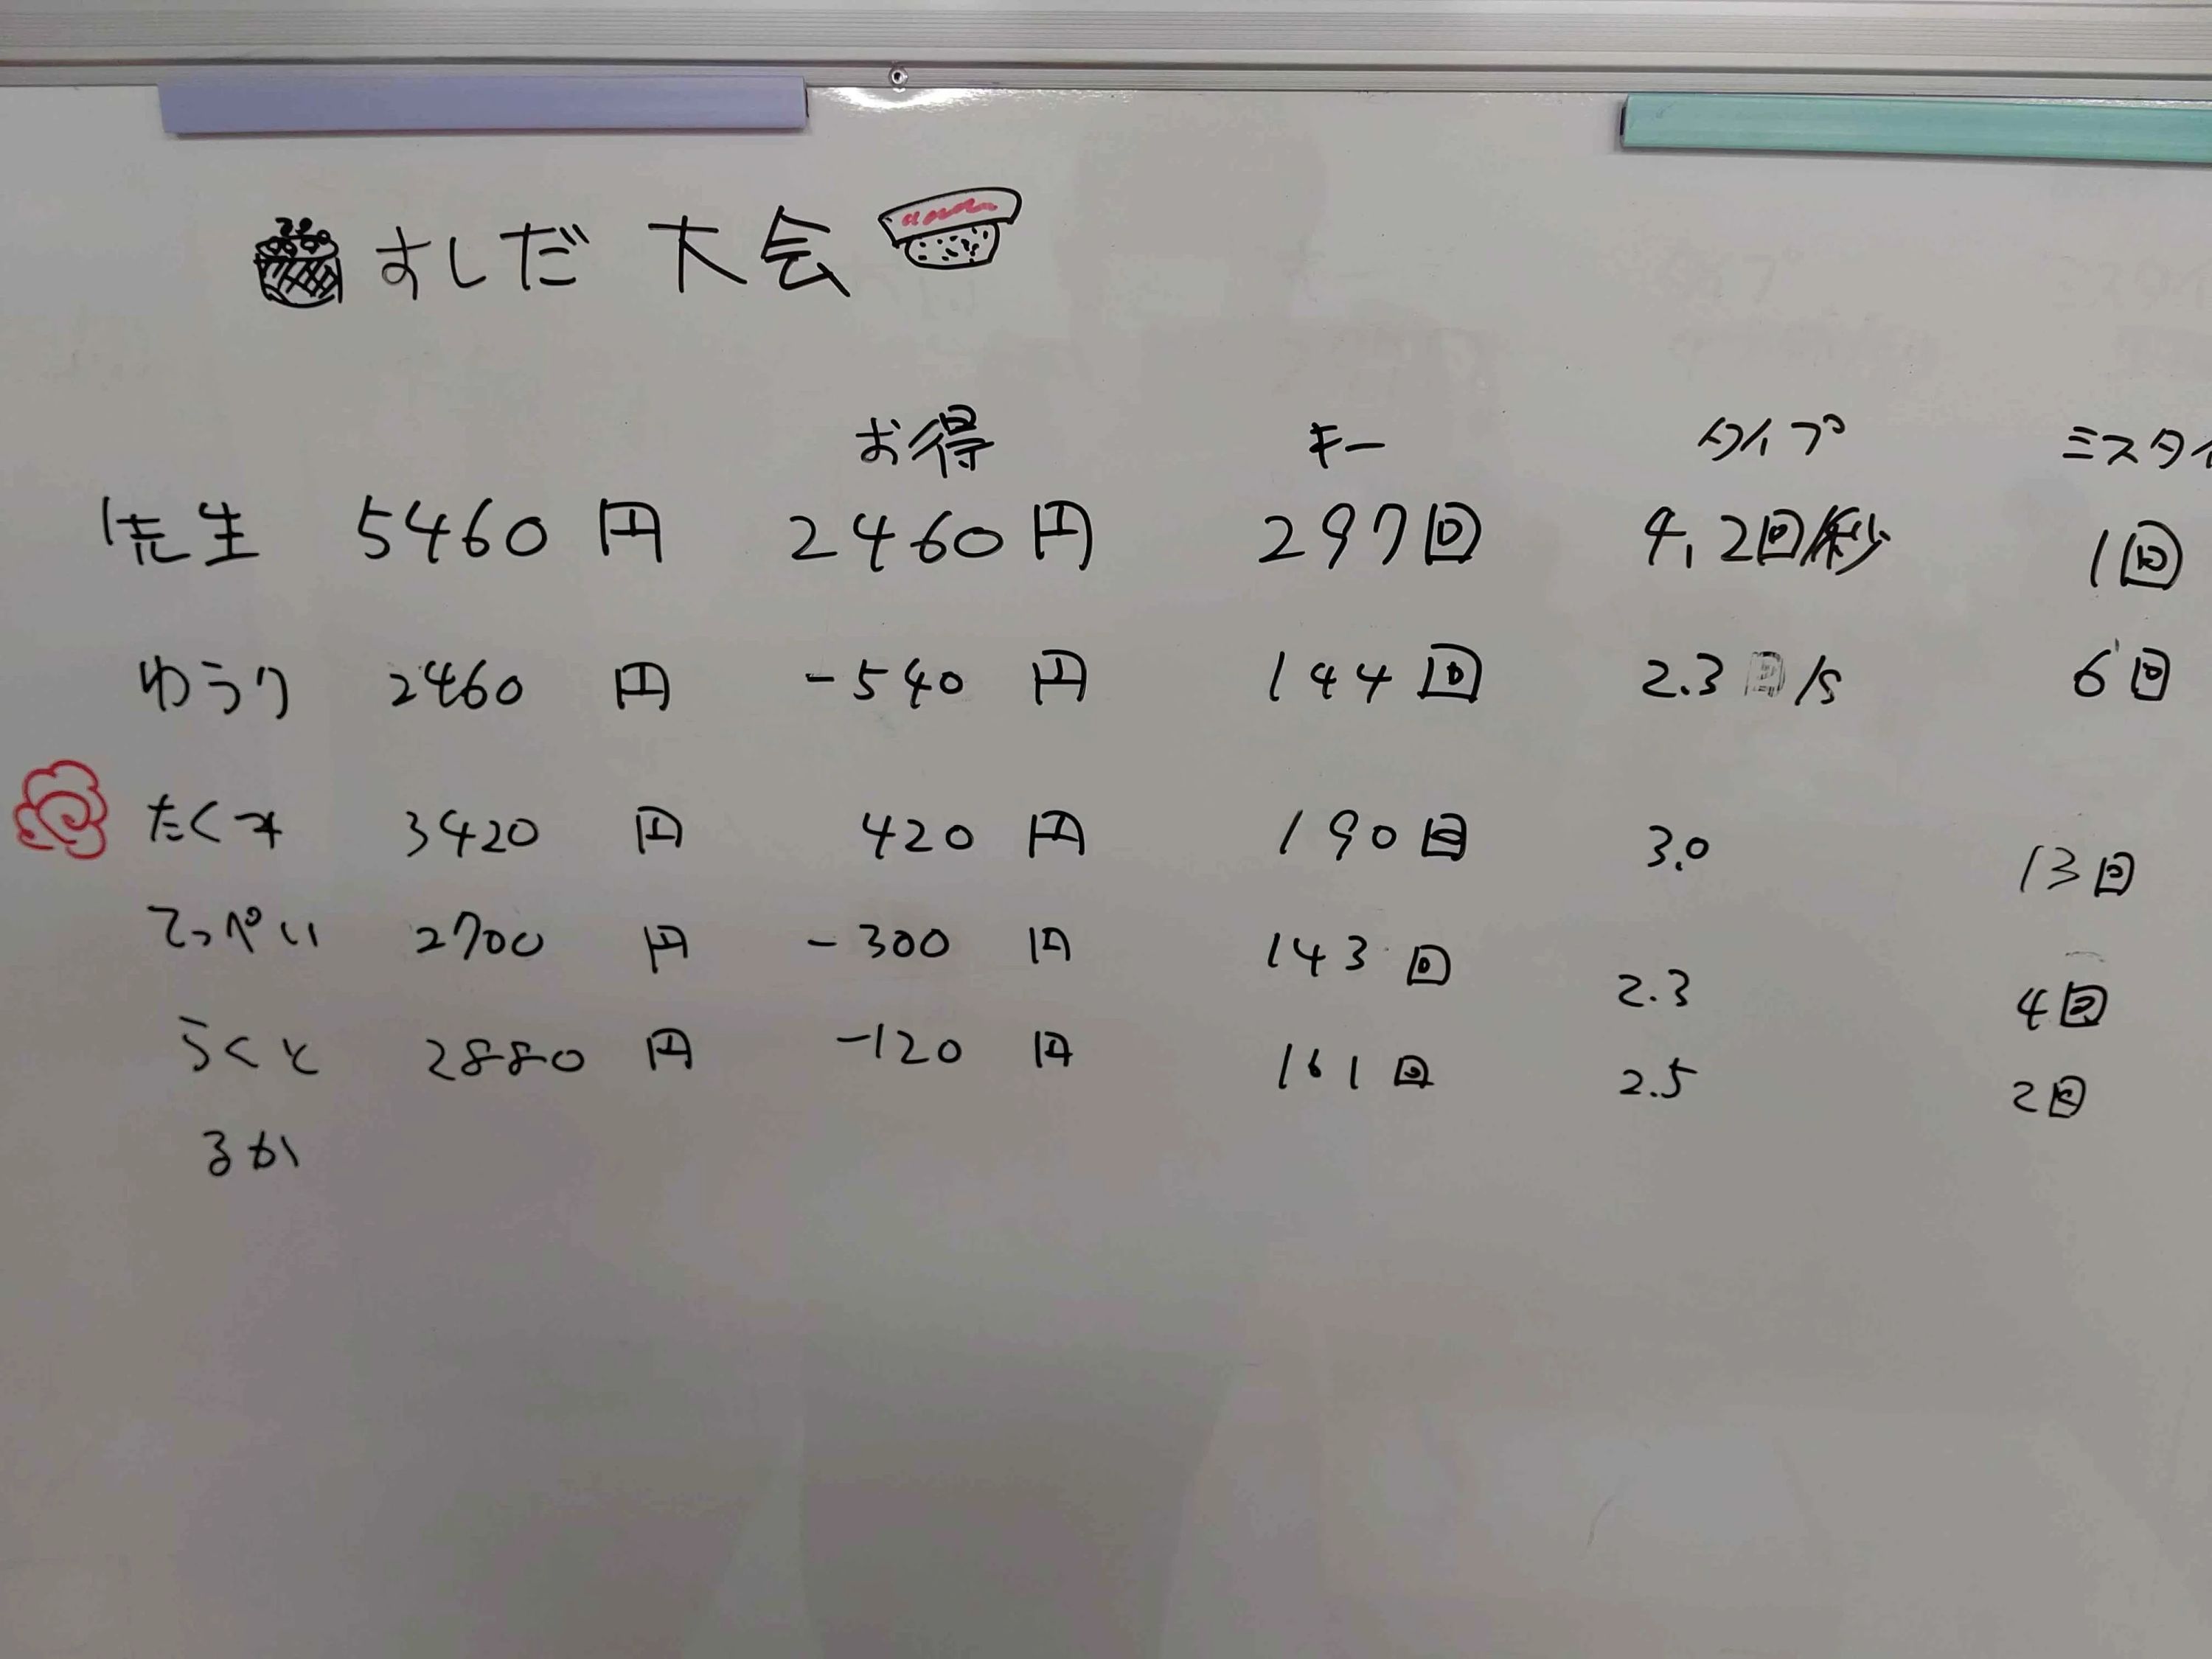 すしだ 大会
お得 キー タイプ ミスタイ
先生 5460 円 2460円 297回 4.2回/秒 1回
ゆうり 2460 円 -540 円 144回 2.3回/s 6回
たくみ 3420 円 420 円 190回 3.0 13回
てっぺい 2700 円 -300 円 143回 2.3 4回
らくと 2880 円 -120 円 161回 2.5 2回
るか